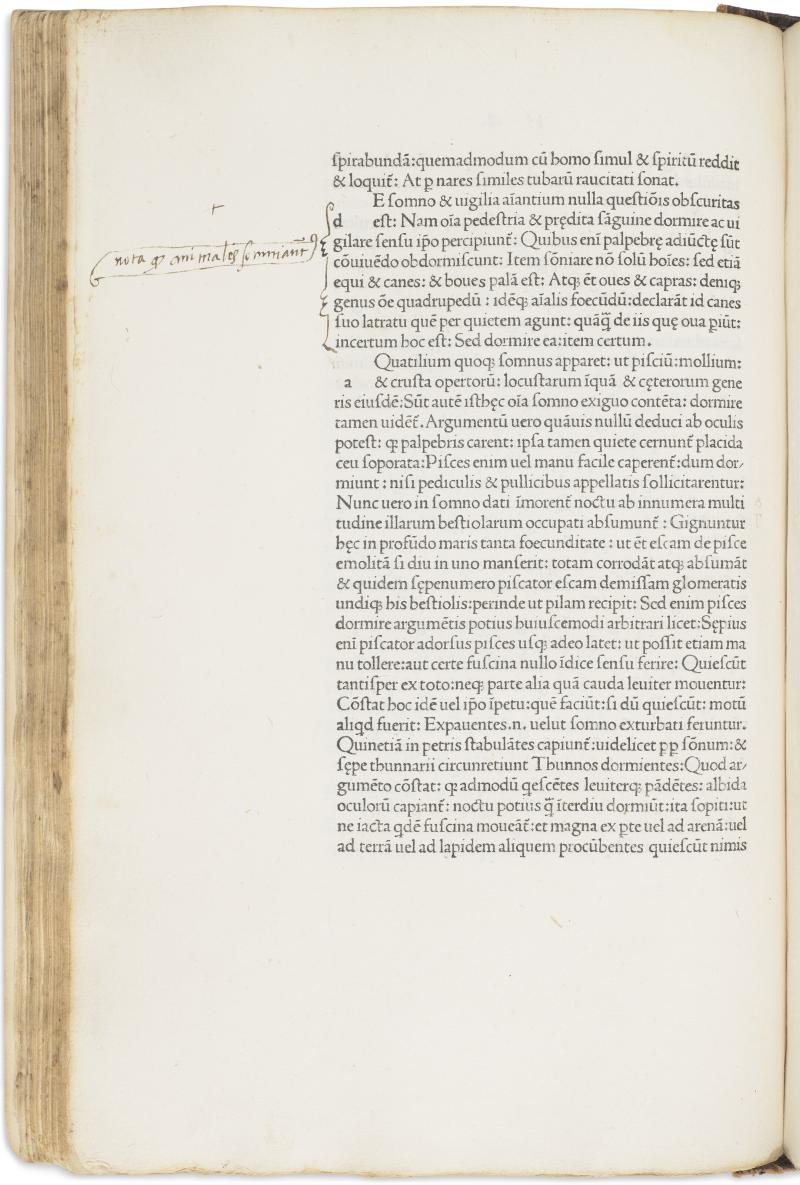 ſpirabundā:quemadmodum cū homo ſimul & ſpiritū reddit
& loquit̄: At ꝑ nares ſimiles tubarū raucitati ſonat.
E ſomno & uigilia aīantium nulla queſtiōis obſcuritas
d eſt: Nam oīa pedeſtria & prędita ſāguine dormire ac ui
nota ꝙ animales ſomniant
gilare ſenſu ip̄o percipiunt̄: Quibus enī palpebrę adiūctę ſūt
cōuiuēdo obdormiſcunt: Item ſōniare nō ſolū hoīes: ſed etiā
equi & canes: & boues palā eſt: Atqꝫ ēt oues & capras: deniqꝫ
genus ōe quadrupedū : idēqꝫ aīalis foecūdū:declarāt id canes
ſuo latratu quē per quietem agunt: quāꝗ̄ de iis quę oua ꝑiūt:
incertum hoc eſt: Sed dormire ea:item certum.
Quatilium quoqꝫ ſomnus apparet: ut piſciū:mollium:
a & cruſta opertorū: locuſtarum īquā & cęterorum gene
ris eiuſdē:Sūt autē iſthęc oīa ſomno exiguo contēta: dormire
tamen uidēt̄. Argumentū uero quāuis nullū deduci ab oculis
poteſt: ꝙ palpebris carent: ipſa tamen quiete cernunt̄ placida
ceu ſoporata:Piſces enim uel manu facile caperent̄:dum dor⸗
miunt : niſi pediculis & pullicibus appellatis ſollicitarentur:
Nunc uero in ſomno dati īmorent̄ noctu ab innumera multi
tudine illarum beſtiolarum occupati abſumunt̄ : Gignuntur
hęc in profūdo maris tanta foecunditate : ut ēt eſcam de piſce
emolitā ſi diu in uno manſerit: totam corrodāt atqꝫ abſumāt
& quidem ſępenumero piſcator eſcam demiſſam glomeratis
undiqꝫ his beſtiolis:perinde ut pilam recipit: Sed enim piſces
dormire argumētis potius huiuſcemodi arbitrari licet:Sępius
enī piſcator adorſus piſces uſqꝫ adeo latet: ut poſſit etiam ma
nu tollere:aut certe fuſcina nullo īdice ſenſu ferire: Quieſcūt
tantiſper ex toto:neqꝫ parte alia quā cauda leuiter mouentur:
Cōſtat hoc idē uel ip̄o īpetu:quē faciūt:ſi dū quieſcūt: motū
aliqd fuerit: Expauentes.n. uelut ſomno exturbati feruntur.
Quinetiā in petris ſtabulātes capiunt̄:uidelicet ꝑp ſōnum:&
ſępe thunnarii circunretiunt Thunnos dormientes:Quod ar⸗
gumēto cōſtat: ꝙ admodū ꝗeſcētes leuiterqꝫ pādētes: albida
oculorū capiant̄: noctu potius ꝗ̄ īterdiu dormiūt:ita ſopiti:ut
ne iacta ꝗdē fuſcina moueāt̄:et magna ex ꝑte uel ad arenā:uel
ad terrā uel ad lapidem aliquem procūbentes quieſcūt nimis